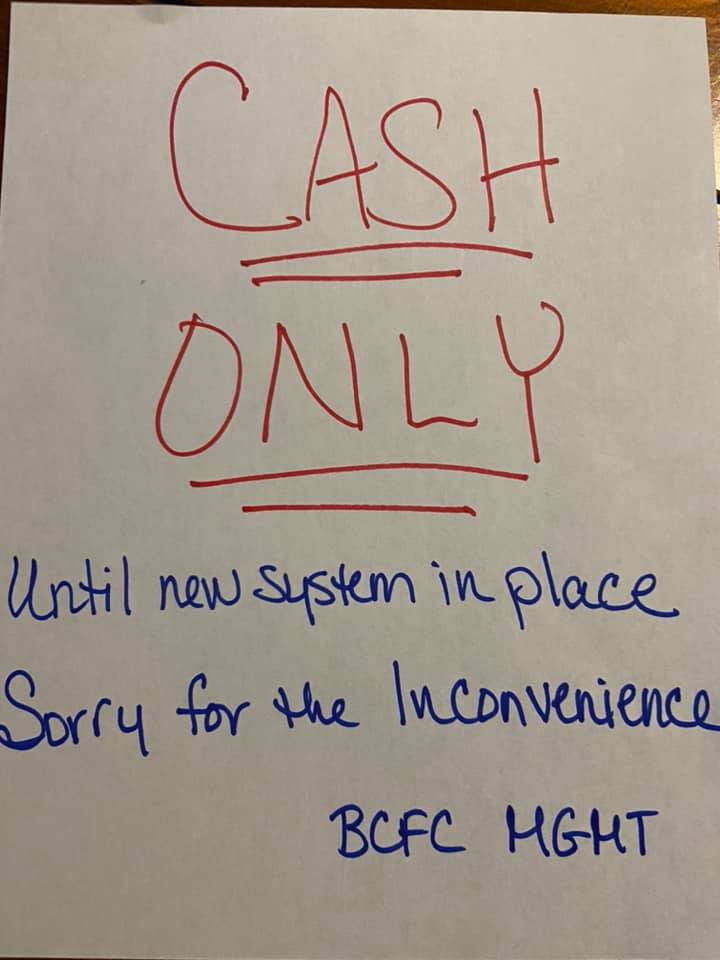 CASH
ONLY
Until new system in place
Sorry for the Inconvenience
BCFC MGMT